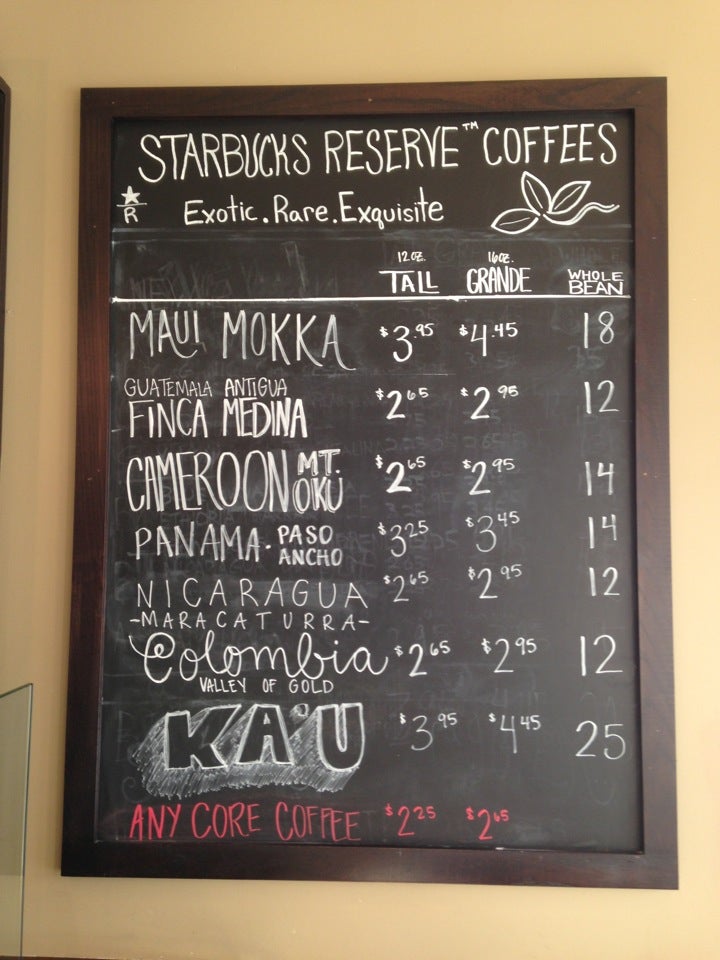 STARBUCKS RESERVE™ COFFEES
★
R
Exotic. Rare. Exquisite
12 oz. 16 oz.
TALL GRANDE WHOLE BEAN
MAUI MOKKA $3.95 $4.45 18
GUATEMALA ANTIGUA
FINCA MEDINA $2.65 $2.95 12
CAMEROON MT. OKU $2.65 $2.95 14
PANAMA · PASO ANCHO $3.25 $3.45 14
NICARAGUA $2.65 $2.95 12
-MARACATURRA-
Colombia $2.65 $2.95 12
VALLEY OF GOLD
KA'U $3.95 $4.45 25
ANY CORE COFFEE $2.25 $2.65